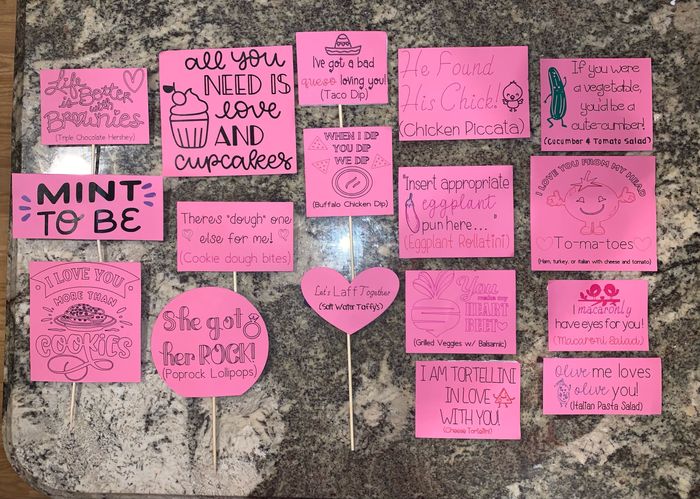 Life
is Better
with
Brownies
(Triple Chocolate Hershey)
all you
NEED IS
love
AND
cupcakes
I've got a bad
queso loving you!
(Taco Dip)
He Found
His Chick!
(Chicken Piccata)
If you were
a vegetable,
you'd be a
cute-cumber!
(Cucumber & Tomato Salad)
MINT
TO BE
Theres "dough" one
else for me!
(Cookie dough bites)
WHEN I DIP
YOU DIP
WE DIP
(Buffalo Chicken Dip)
"Insert appropriate
eggplant
pun here..."
(Eggplant Rollatini)
I LOVE YOU FROM MY HEAD
To-ma-toes
(Ham, turkey, or italian with cheese and tomato)
I LOVE YOU
MORE THAN
COOKIES
She got
her ROCK!
(Poprock Lollipops)
Let's Laff Together
(Salt Water Taffy's)
You
make my
HEART
BEET
(Grilled Veggies w/ Balsamic)
I macaronly
have eyes for you!
(Macaroni Salad)
I AM TORTELLINI
IN LOVE
WITH YOU!
(Cheese Tortellini)
Olive me loves
olive you!
(Italian Pasta Salad)